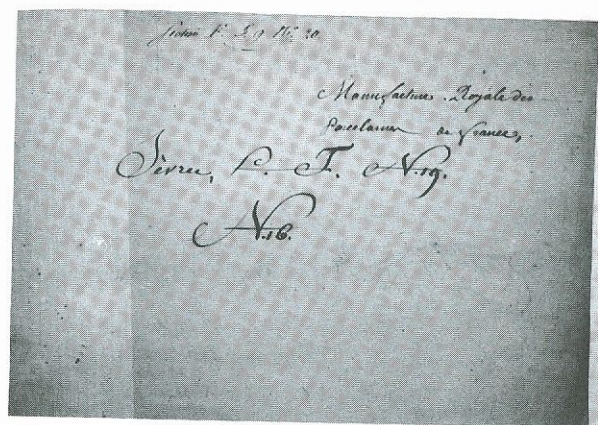 N.° 20
Manufacture Royale des
Porcelaines de france,
Sèvres, L. F. N.19.
N.16.